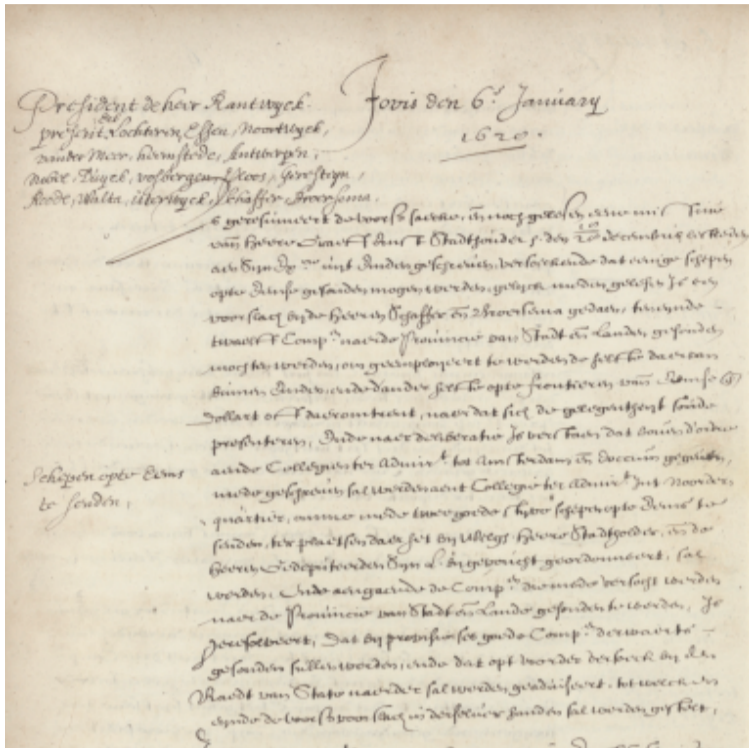 President de heer Rantwyck
present Lochteren, Essen, Noortwyck,
vander Meer, heemstede, Antwerpen,
nobel Duyck, vosbergen Ploos, Heresteyn,
Reede, Walta, Uterwyck, Schaffer Broersema.
Jovis den 6.e January
1629.
Is geresumeert de voors saecke, en noch gelesen eene missive
van Heere Graeff Ernst Stadthouder den decembris verleden
aen Syn Ex.cie uut Emden geschreven, versoeckende dat eenige schepen
opte Eemse gesonden mogen werden, gelyck mede gelesen is een
voorslach by de Heeren Schaffer en Broersema gedaen, teneinde
twaelff Comp.n naer de Provincie van Stadt en Landen gesonden
mochten werden, om geemployeert te werden de helft daer van
binnen Emden, ende dander helft opte frontieren van Eemse
Dollart oft daeromtrent, naer dat sich de gelegentheyt soude
presenteren, Ende naer deliberatie is verstaen dat boven d'ordre
aende Collegien ter Admir.t tot Amsterdam en Doccum gegeven,
mede geschreven sal werden aent Collegie ter Admir.t int Noorder-
quartier, omme mede twee goede schepen opte Eems te
senden, ter plaetsen daer het by Heere Stadtholder, en de
Heeren Gedeputeerden geordonneert sal
werden, Ende aengaende de Comp.n die mede versocht werden
naer de Provincie van Stadt en Lande gesonden te werden, Is
geresolveert, Dat by provisie ses goede Comp.n derwaerts
gesonden sullen werden, ende dat opt voorder versoeck by den
Raedt van State naerder sal werden geadviseert, tot welcken
einde de voors voorslach in derselver handen sal werden gestelt,
Schepen opte Eems
te senden,